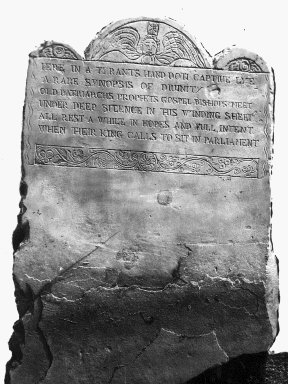 HERE IN A TYRANTS HAND DOTH CAPTIVE LYE
A RARE SYNOPSIS OF DIVINITY
OLD PATRIARCHS PROPHETS GOSPEL BISHOPS MEET
UNDER DEEP SILENCE IN HIS WINDING SHEET
ALL REST A WHILE IN HOPES AND FULL INTENT
WHEN THEIR KING CALLS TO SIT IN PARLIAMENT